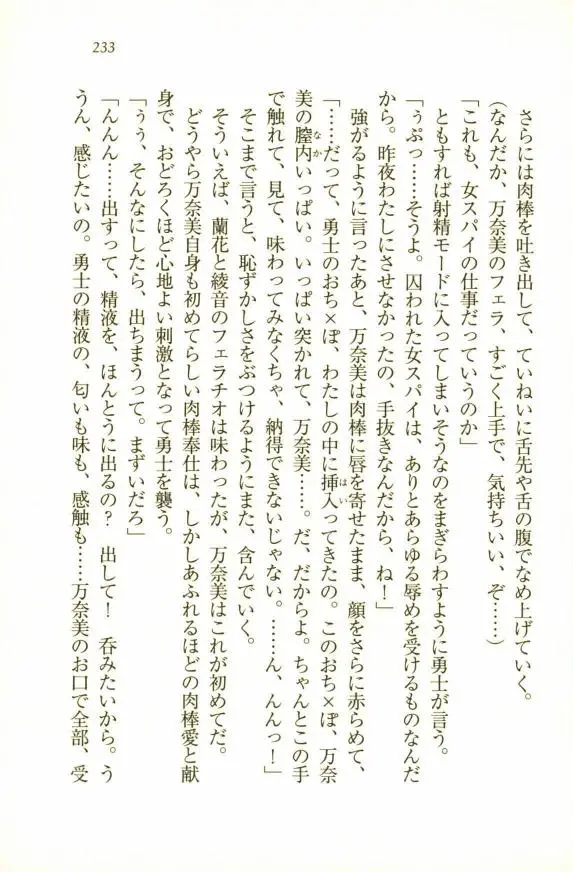 233
さらには肉棒を吐き出して、ていねいに舌先や舌の腹でなめ上げていく。
（なんだか、万奈美のフェラ、すごく上手で、気持ちいい、ぞ……）
「これも、女スパイの仕事だっていうのか」
ともすれば射精モードに入ってしまいそうなのをまぎらわすように勇士が言う。
「ぅぷっ……そうよ。囚われた女スパイは、ありとあらゆる辱めを受けるものなんだ
から。昨夜わたしにさせなかったの、手抜きなんだから、ね！」
強がるように言ったあと、万奈美は肉棒に唇を寄せたまま、顔をさらに赤らめて、
「……だって、勇士のおち×ぽ、わたしの中に挿入ってきたの。このおち×ぽ、万奈
美の膣内いっぱい。いっぱい突かれて、万奈美……。だ、だからよ。ちゃんとこの手
で触れて、見て、味わってみなくちゃ、納得できないじゃない。……ん、んんっ！」
そこまで言うと、恥ずかしさをぶつけるようにまた、含んでいく。
そういえば、蘭花と綾音のフェラチオは味わったが、万奈美はこれが初めてだ。
どうやら万奈美自身も初めてらしい肉棒奉仕は、しかしあふれるほどの肉棒愛と献
身で、おどろくほど心地よい刺激となって勇士を襲う。
「ぅぅ、そんなにしたら、出ちまうって。まずいだろ」
「んんん……出すって、精液を、ほんとうに出るの？　出して！　呑みたいから。う
うん、感じたいの。勇士の精液の、匂いも味も、感触も……万奈美のお口で全部、受